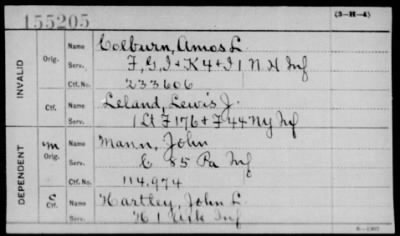 155205
(3-H-4)
INVALID
Orig.
Name Colburn, Amos L.
Serv. F, G, I + K 4 + I 1 N H Inf
Ctf. No. 233606
Ctf.
Name Leland, Lewis J.
Serv. 1 Lt F 176 + F 44 NY Inf
DEPENDENT
m
Orig.
Name Mann, John
Serv. C 85 Pa Inf
Ctf. No. 114,974
C
Ctf.
Name Hartley, John L.
Serv. H 1 Ark Inf